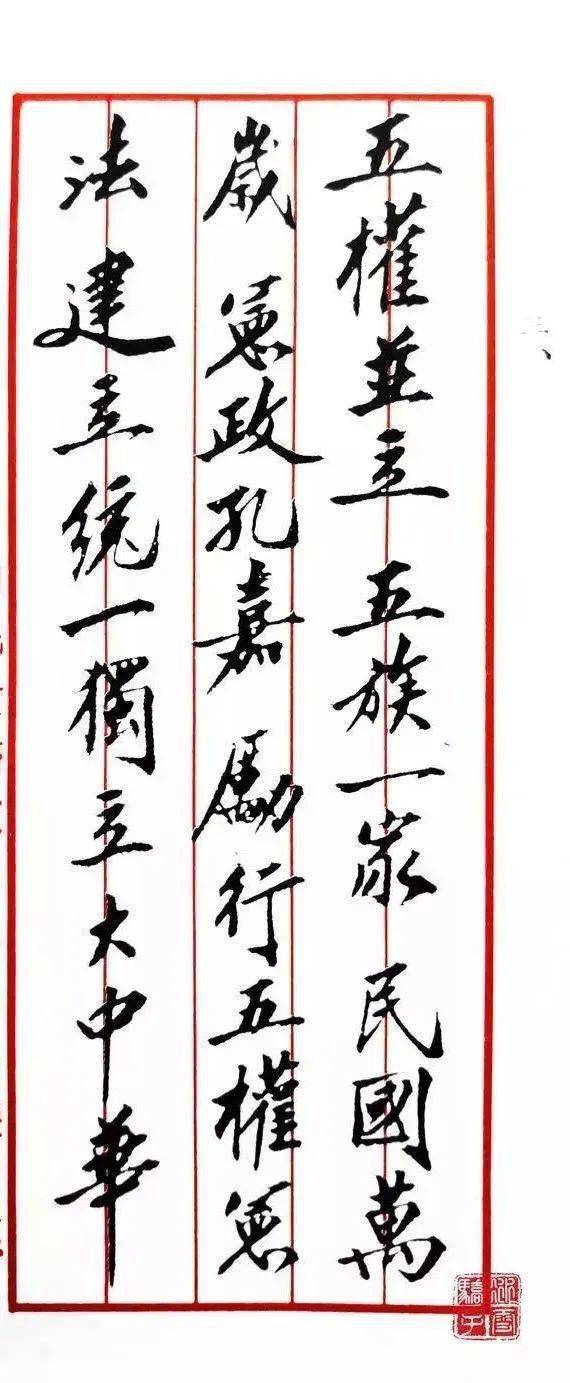 五權並立 五族一家 民國萬
歲 憲政孔嘉 勵行五權憲
法建立統一獨立大中華